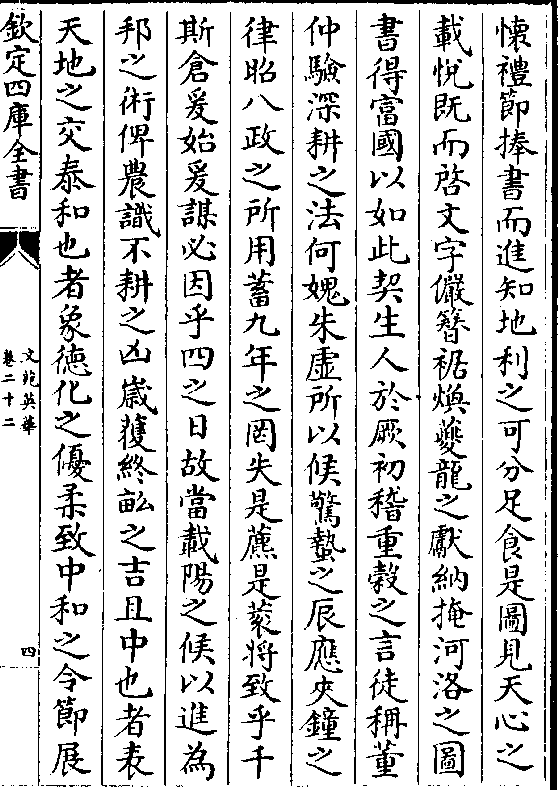 懐禮節捧書而進知地利之可分足食是圖見天心之
載悅既而啓文字儼簪裾煥夔龍之獻納掩河洛之圖
書得富國以如此契生人於厥初稽重穀之言徒稱董
仲驗深耕之法何媿朱虛所以候驚蟄之辰應夾鐘之
律昭八政之所用蓄九年之罔失是藨是蔉將致乎千
斯倉爰始爰謀必因乎四之日故當載陽之候以進為
邦之術俾農識不耕之凶嵗獲終畝之吉且中也者表
天地之交泰和也者象徳化之優柔致中和之令節展
欽定四庫全書
文苑英華
卷二十二
四